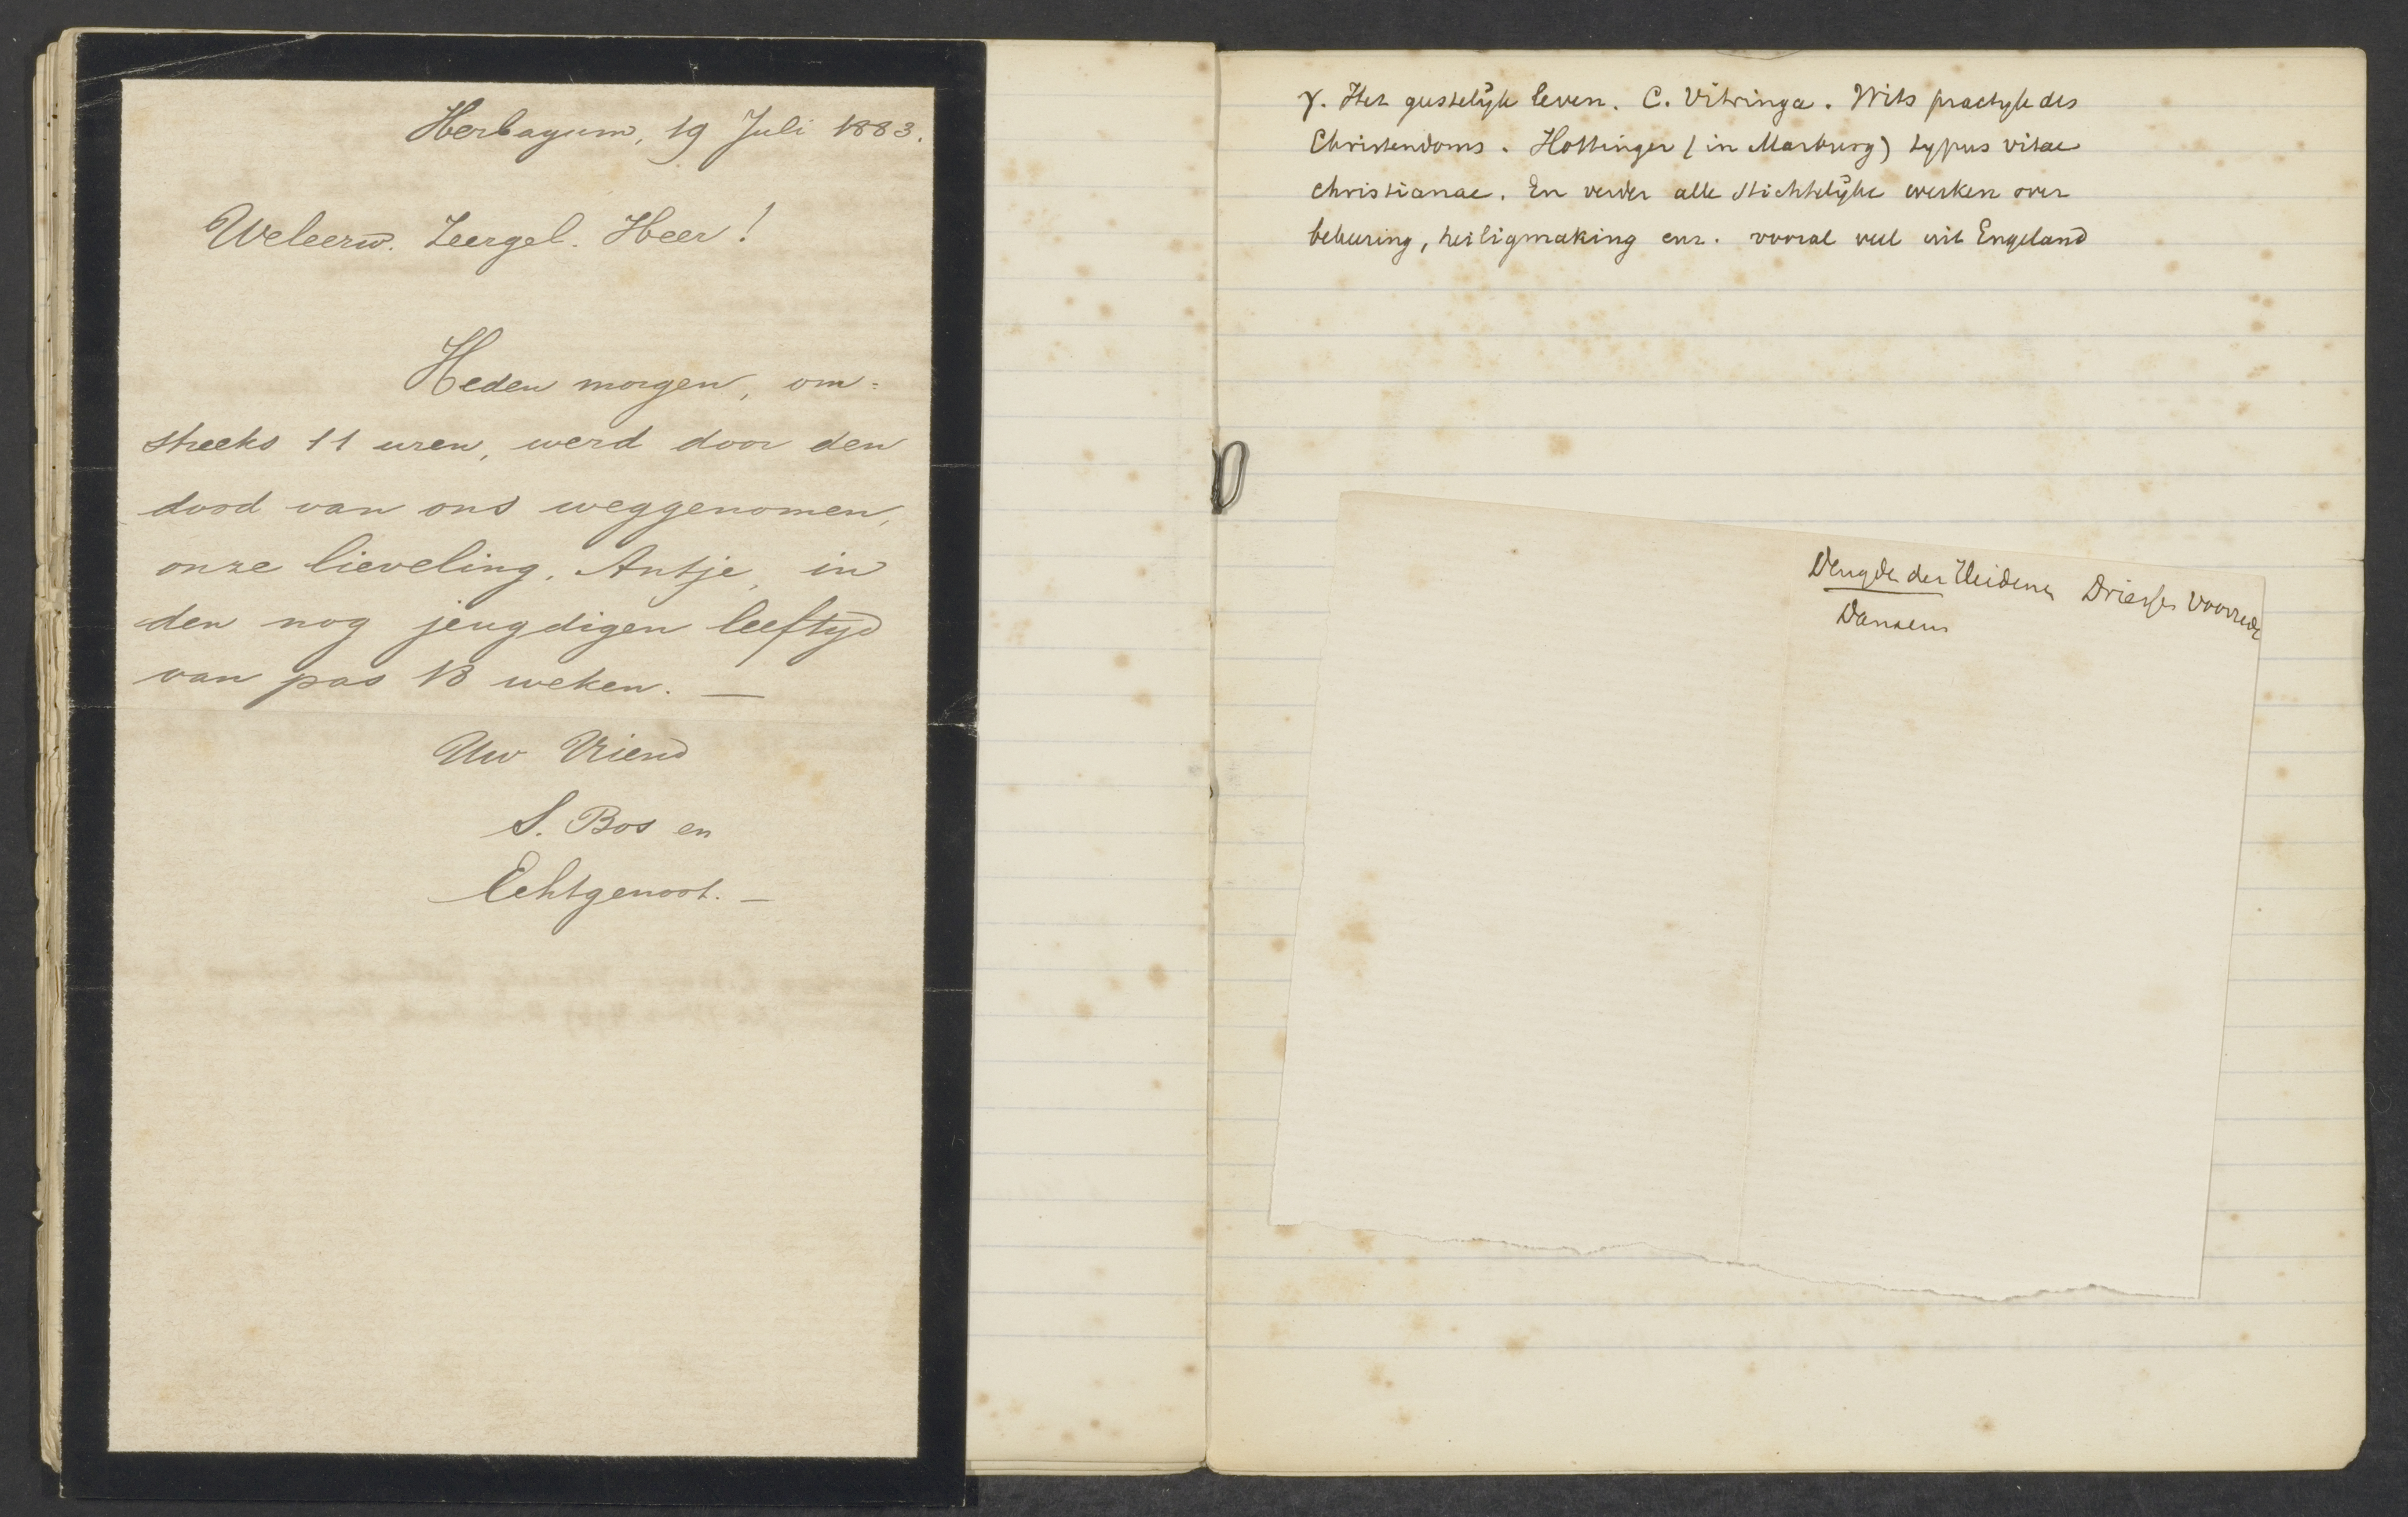 Herbayum, 19 Juli 1883.
Weleerw. Zeergel. Heer!
Heden morgen, om=
streeks 11 uren, werd door den
dood van ons weggenomen,
onze lieveling, Antje, in
den nog jeugdigen leeftijd
van pas 13 weken. —
Uw Vriend
S. Bos en
Echtgenoot. —
γ. Het geestelijk leven. C. Vitringa. Wits practijk des
Christendoms. Hottinger (in Marburg) typus vitae
christianae. En verder alle stichtelijke werken over
bekeering, heiligmaking enz. vooral veel uit Engeland
Deugde der Heidenen Driessen Voorrede
Dansen